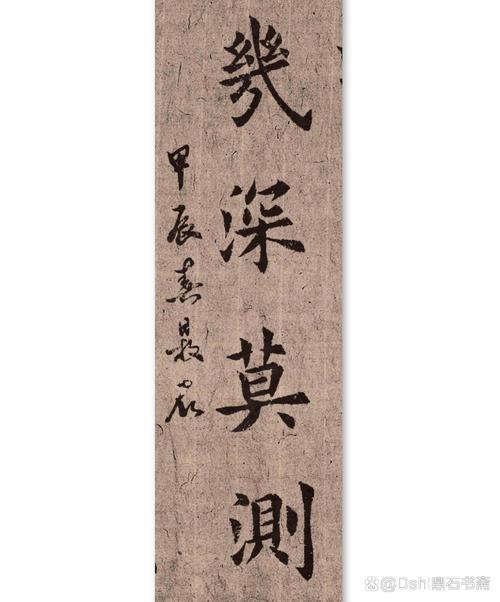 幾深莫測
甲辰春晨
@Dshl鼎石书斋